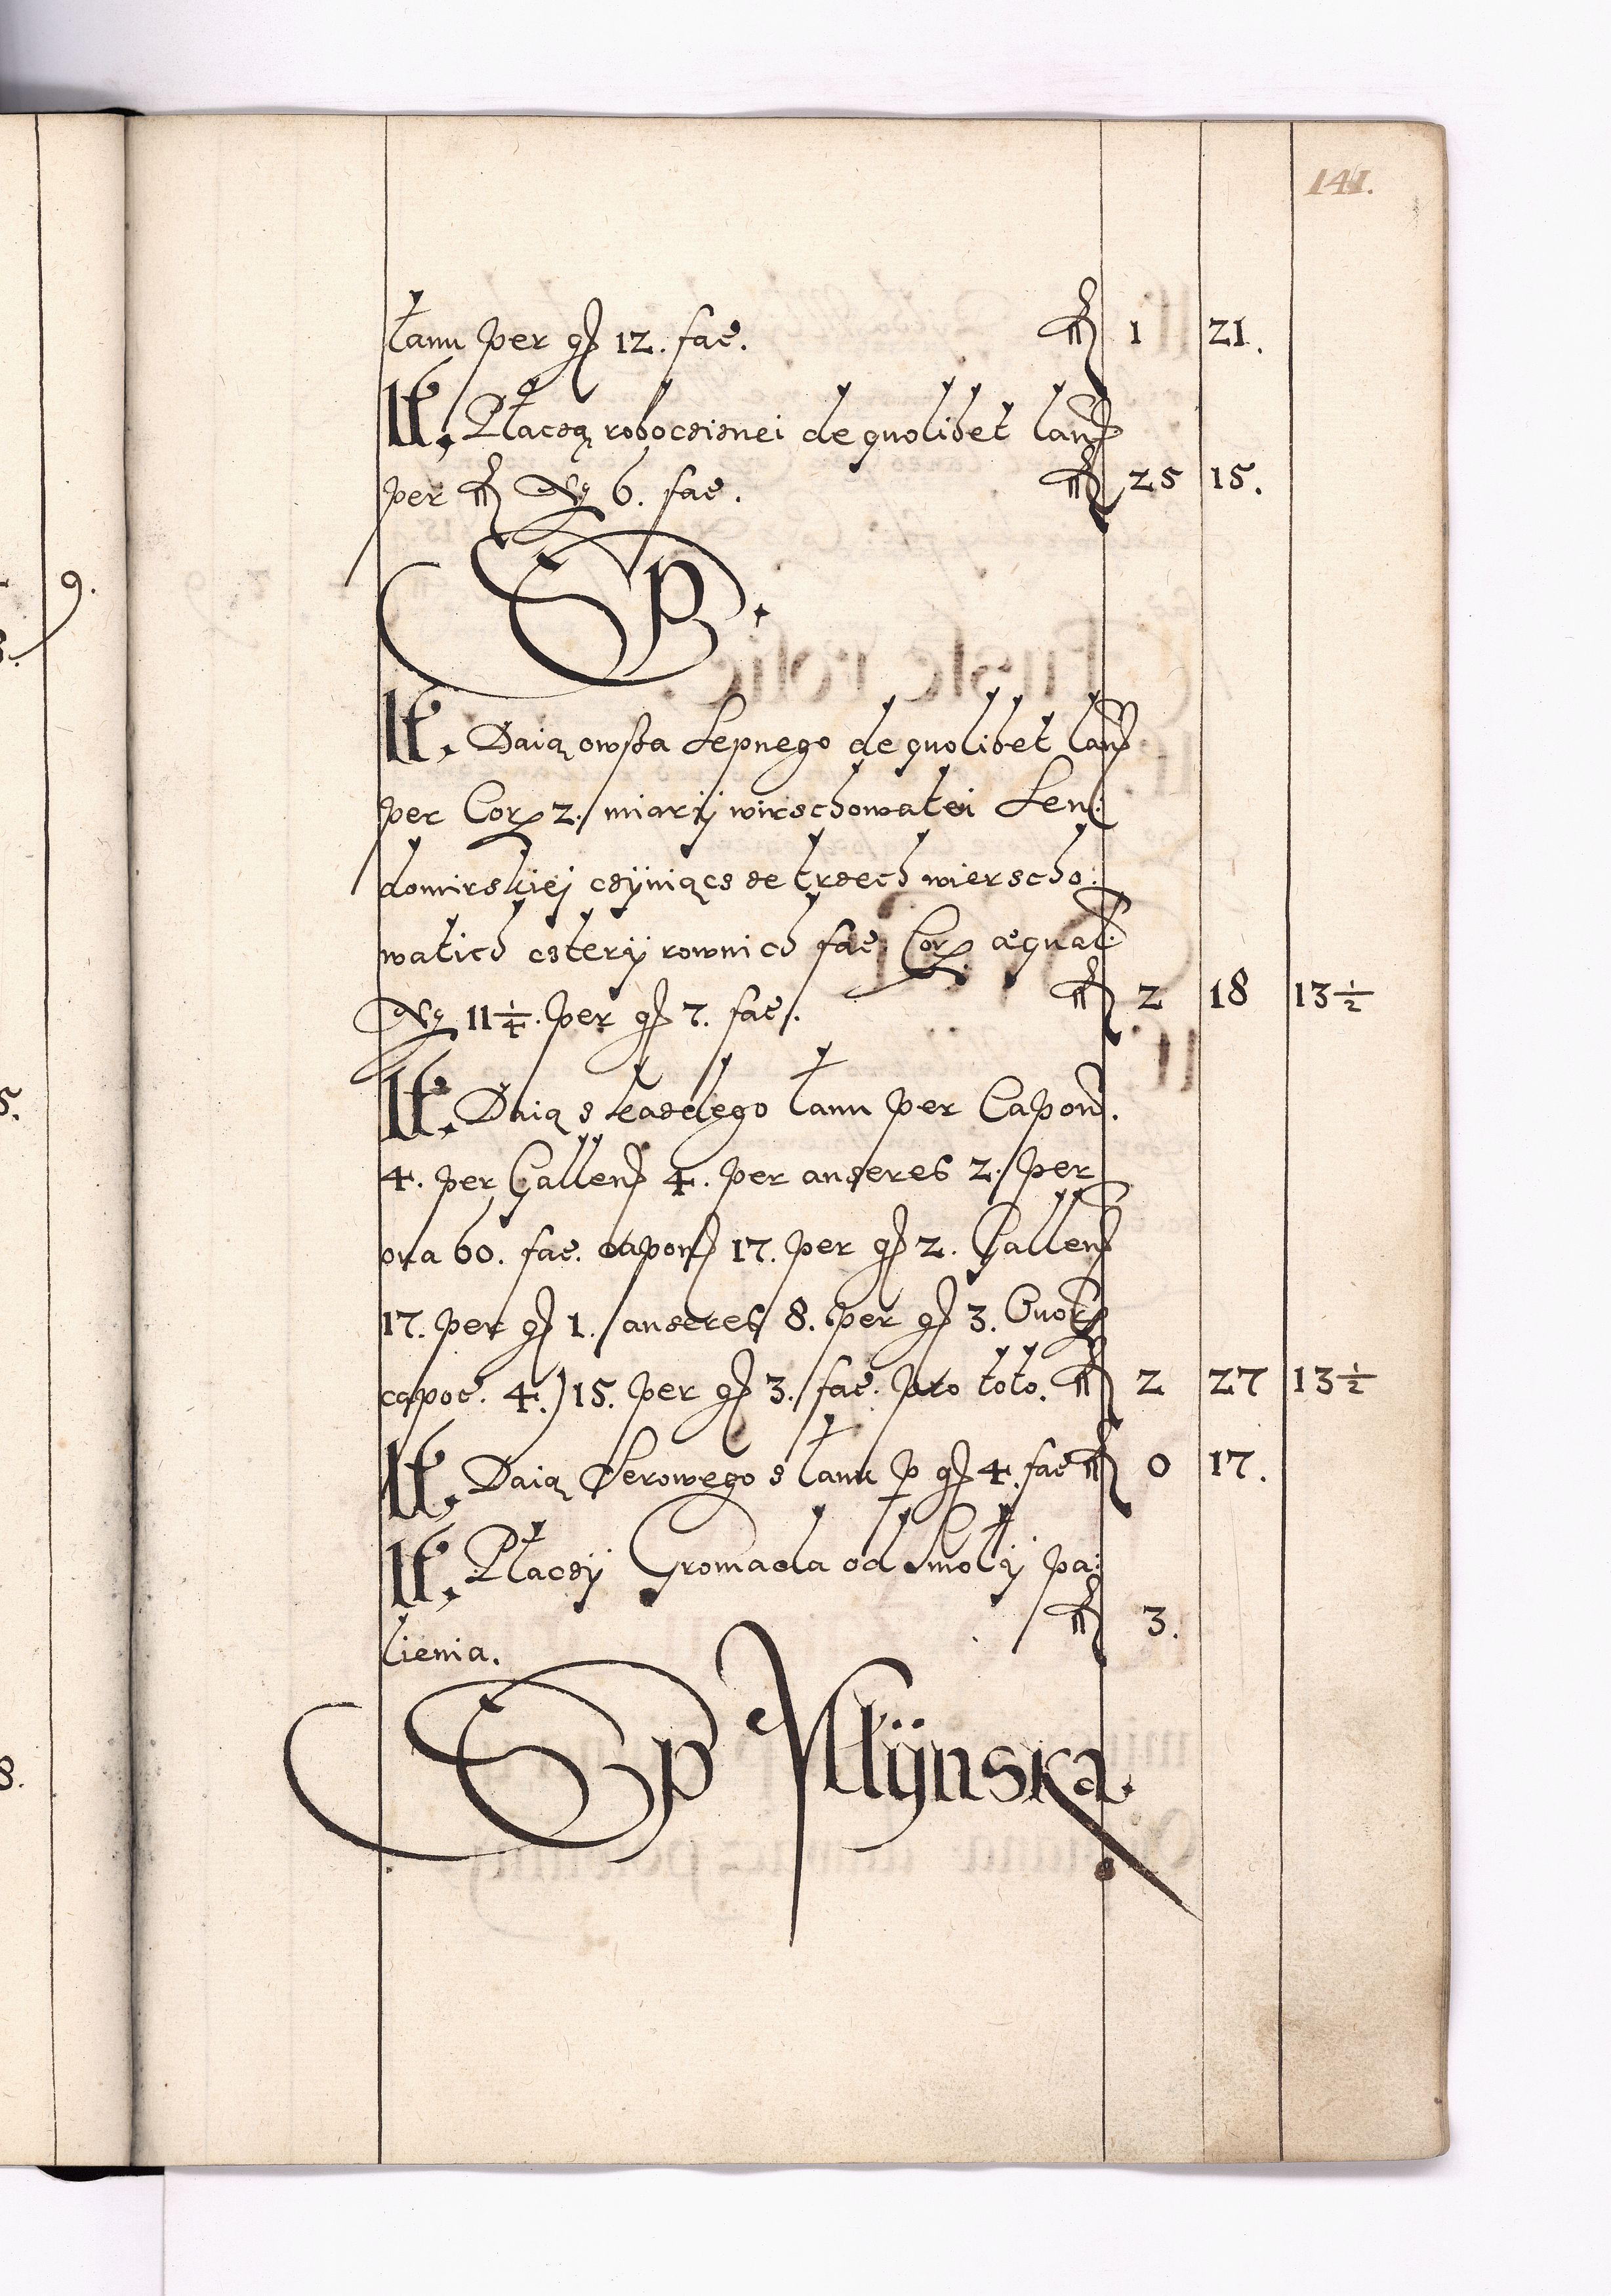 141.
łanu per gr 12. fac. fl 1 21.
It. Płaczą roboczisnei de quolibet lan
per fl No 6. fac. fl 25 15.
Sp.
It. Daią owsza Sepnego de quolibet lan
per Cor 2. miarÿ wirschowatei Sen:
domirskiej czÿniącz ze trzech wierscho:
watich czterÿ rownich fac Cor æqual.
No 11¼. per gr 7. fac. fl 2 18 13½
It. Daią s każdego łanu per Capon.
4. per Gallen 4. per anseres 2. per
ova 60. fac. capon 17. per gr 2. Gallen
17. per gr 1. anseres 8. per gr 3. Ovor
capoe. 4.) 15. per gr 3. fac. pro toto. fl 2 27 13½
It. Daią Serowego s łanu p gr 4. fac fl 0 17.
It. Płaczÿ Gromada od smołÿ pa:
lienia. fl 3.
Sp Młÿnska.
9.
5.
8.